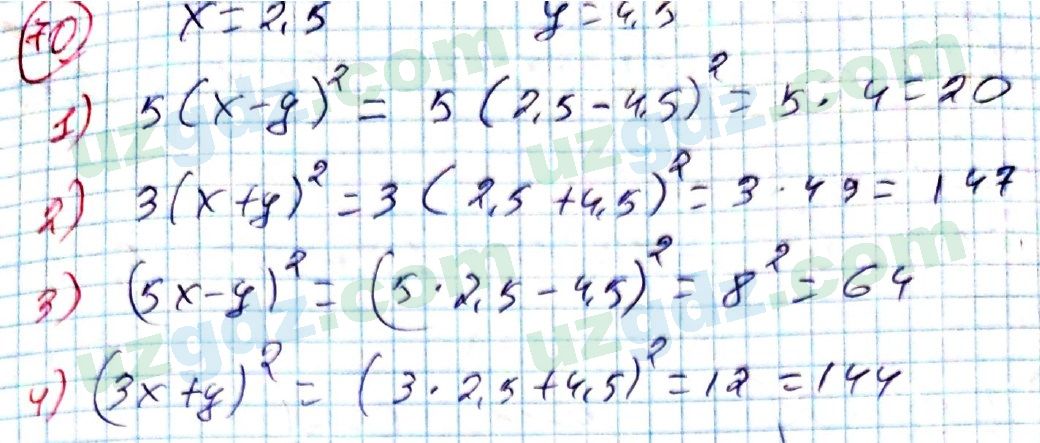 70 x = 2,5 y = 4,5
1) 5(x-y)² = 5(2,5-4,5)² = 5·4=20
2) 3(x+y)² = 3(2,5+4,5)² = 3·49=147
3) (5x-y)² = (5·2,5-4,5)² = 8² = 64
4) (3x+y)² = (3·2,5+4,5)² = 12 = 144
uzgdz.com
uzgdz.com
uzgdz.com
uzgdz.com